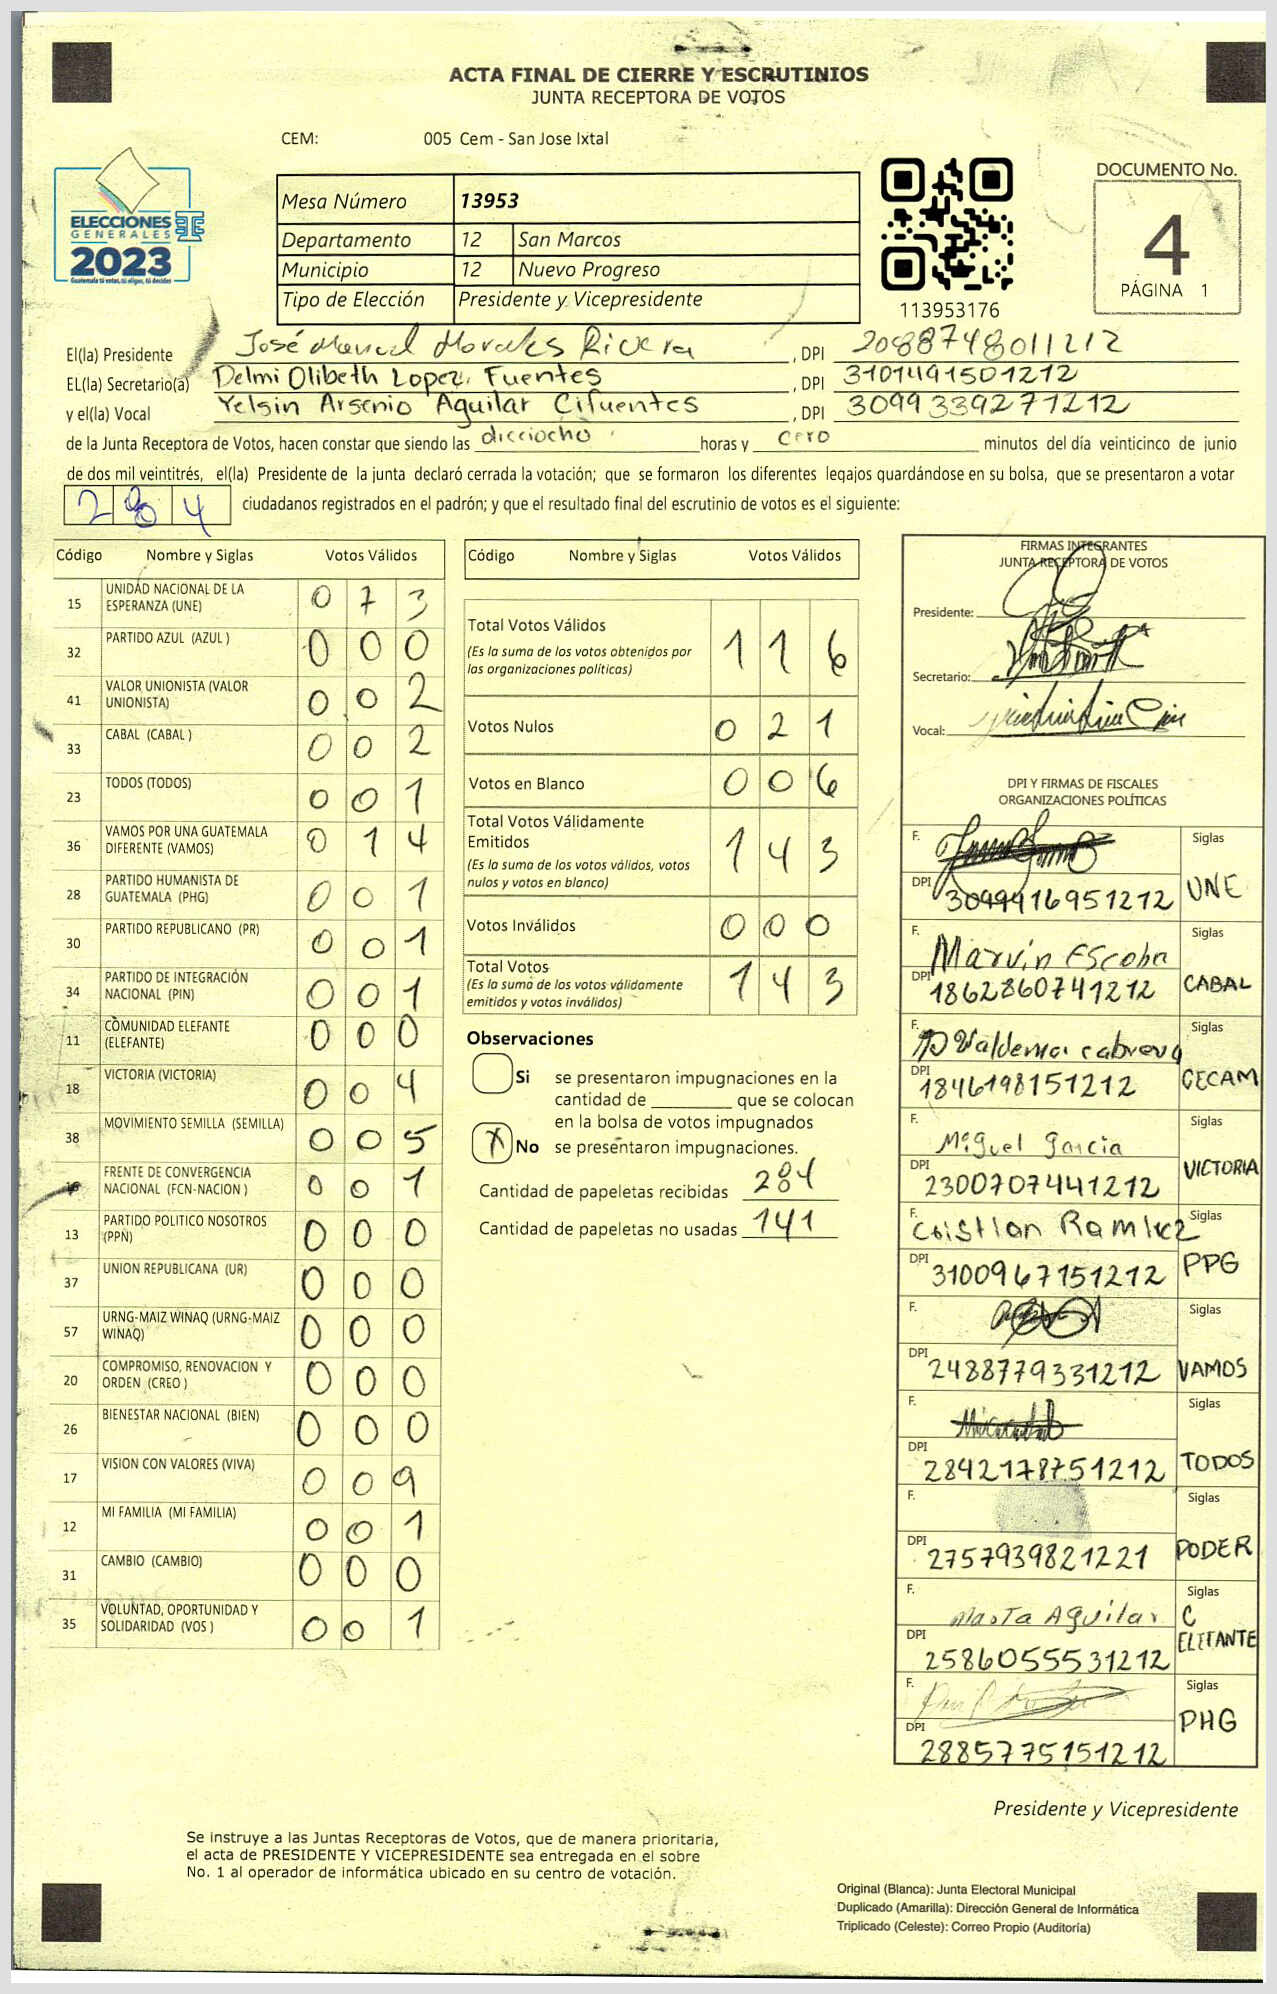 ACTA FINAL DE CIERRE Y ESCRUTINIOS
JUNTA RECEPTORA DE VOTOS
CEM: 005 Cem - San Jose Ixtal
ELECCIONES
GENERALES
2023
Guatemala tú votas, tú eliges, tú decides
Mesa Número 13953
Departamento 12 San Marcos
Municipio 12 Nuevo Progreso
Tipo de Elección Presidente y Vicepresidente
113953176
DOCUMENTO No.
4
PÁGINA 1
El(la) Presidente José Manuel Morales Rivera, DPI 2088748011212
EL(la) Secretario(a) Delmi Olibeth Lopez Fuentes, DPI 3101491501212
y el(la) Vocal Yelsin Arsenio Aguilar Cifuentes, DPI 3099339271212
de la Junta Receptora de Votos, hacen constar que siendo las dieciocho horas y cero minutos del día veinticinco de junio
de dos mil veintitrés, el(la) Presidente de la junta declaró cerrada la votación; que se formaron los diferentes legajos guardándose en su bolsa, que se presentaron a votar
284 ciudadanos registrados en el padrón; y que el resultado final del escrutinio de votos es el siguiente:
Código Nombre y Siglas Votos Válidos
15 UNIDAD NACIONAL DE LA ESPERANZA (UNE) 0 7 3
32 PARTIDO AZUL (AZUL ) 0 0 0
41 VALOR UNIONISTA (VALOR UNIONISTA) 0 0 2
33 CABAL (CABAL ) 0 0 2
23 TODOS (TODOS) 0 0 1
36 VAMOS POR UNA GUATEMALA DIFERENTE (VAMOS) 0 1 4
28 PARTIDO HUMANISTA DE GUATEMALA (PHG) 0 0 1
30 PARTIDO REPUBLICANO (PR) 0 0 1
34 PARTIDO DE INTEGRACIÓN NACIONAL (PIN) 0 0 1
11 COMUNIDAD ELEFANTE (ELEFANTE) 0 0 0
18 VICTORIA (VICTORIA) 0 0 4
38 MOVIMIENTO SEMILLA (SEMILLA) 0 0 5
16 FRENTE DE CONVERGENCIA NACIONAL (FCN-NACION ) 0 0 1
13 PARTIDO POLITICO NOSOTROS (PPN) 0 0 0
37 UNION REPUBLICANA (UR) 0 0 0
57 URNG-MAIZ WINAQ (URNG-MAIZ WINAQ) 0 0 0
20 COMPROMISO, RENOVACION Y ORDEN (CREO ) 0 0 0
26 BIENESTAR NACIONAL (BIEN) 0 0 0
17 VISION CON VALORES (VIVA) 0 0 9
12 MI FAMILIA (MI FAMILIA) 0 0 1
31 CAMBIO (CAMBIO) 0 0 0
35 VOLUNTAD, OPORTUNIDAD Y SOLIDARIDAD (VOS ) 0 0 1
Código Nombre y Siglas Votos Válidos
Total Votos Válidos 1 1 6
(Es la suma de los votos obtenidos por las organizaciones políticas)
Votos Nulos 0 2 1
Votos en Blanco 0 0 6
Total Votos Válidamente Emitidos 1 4 3
(Es la suma de los votos válidos, votos nulos y votos en blanco)
Votos Inválidos 0 0 0
Total Votos 1 4 3
(Es la suma de los votos válidamente emitidos y votos inválidos)
Observaciones
Si se presentaron impugnaciones en la
cantidad de ________ que se colocan
en la bolsa de votos impugnados
X No se presentaron impugnaciones.
Cantidad de papeletas recibidas 284
Cantidad de papeletas no usadas 141
FIRMAS INTEGRANTES
JUNTA RECEPTORA DE VOTOS
Presidente:
Secretario:
Vocal:
DPI Y FIRMAS DE FISCALES
ORGANIZACIONES POLÍTICAS
F. Siglas
DPI 3099916951212 UNE
F. Marvin Escoba Siglas
DPI 1862860741212 CABAL
F. Valdemar cabrera Siglas
DPI 1846198151212 CECAM
F. Miguel Garcia Siglas
DPI 2300707441212 VICTORIA
F. Cristian Ramirez Siglas
DPI 3100967151212 PPG
F. Siglas
DPI 2488779331212 VAMOS
F. Siglas
DPI 2842178751212 TODOS
F. Siglas
DPI 2757939821221 PODER
F. Marta Aguilar Siglas
DPI 2586055531212 C ELEFANTE
F. Siglas
DPI 2885775151212 PHG
Presidente y Vicepresidente
Se instruye a las Juntas Receptoras de Votos, que de manera prioritaria,
el acta de PRESIDENTE Y VICEPRESIDENTE sea entregada en el sobre
No. 1 al operador de informática ubicado en su centro de votación.
Original (Blanca): Junta Electoral Municipal
Duplicado (Amarilla): Dirección General de Informática
Triplicado (Celeste): Correo Propio (Auditoría)